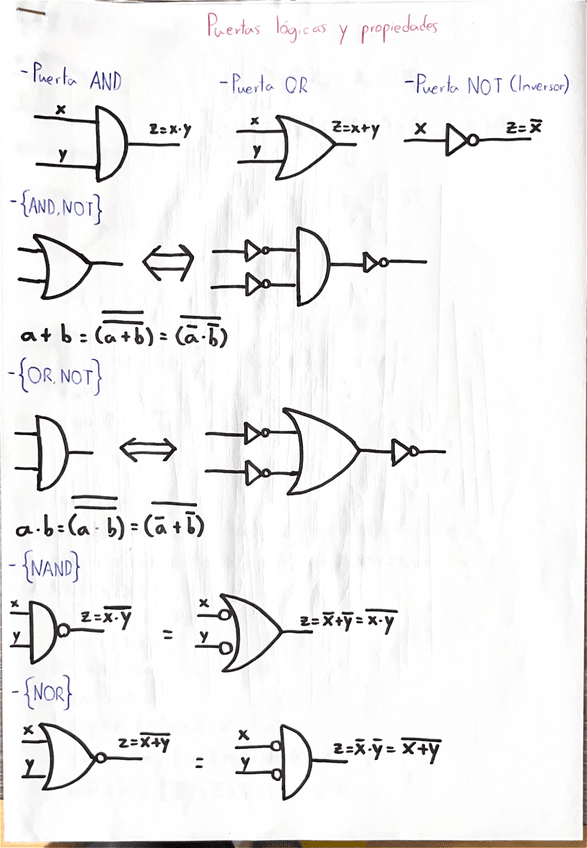 Puertas lógicas y propiedades
-Puerta AND
x
y
z=x·y
-Puerta OR
x
y
z=x+y
-Puerta NOT (Inversor)
x
z=x̅
-{AND,NOT}
a+b = (a̿+̿b̿) = (a̅·b̅)̅
-{OR,NOT}
a·b=(a̿·̿b̿) = (a̅+b̅)̅
-{NAND}
x
y
z=x̅·̅y̅
=
x
y
z=x̅+y̅=x̅·̅y̅
-{NOR}
x
y
z=x̅+̅y̅
=
x
y
z=x̅·y̅= x̅+̅y̅